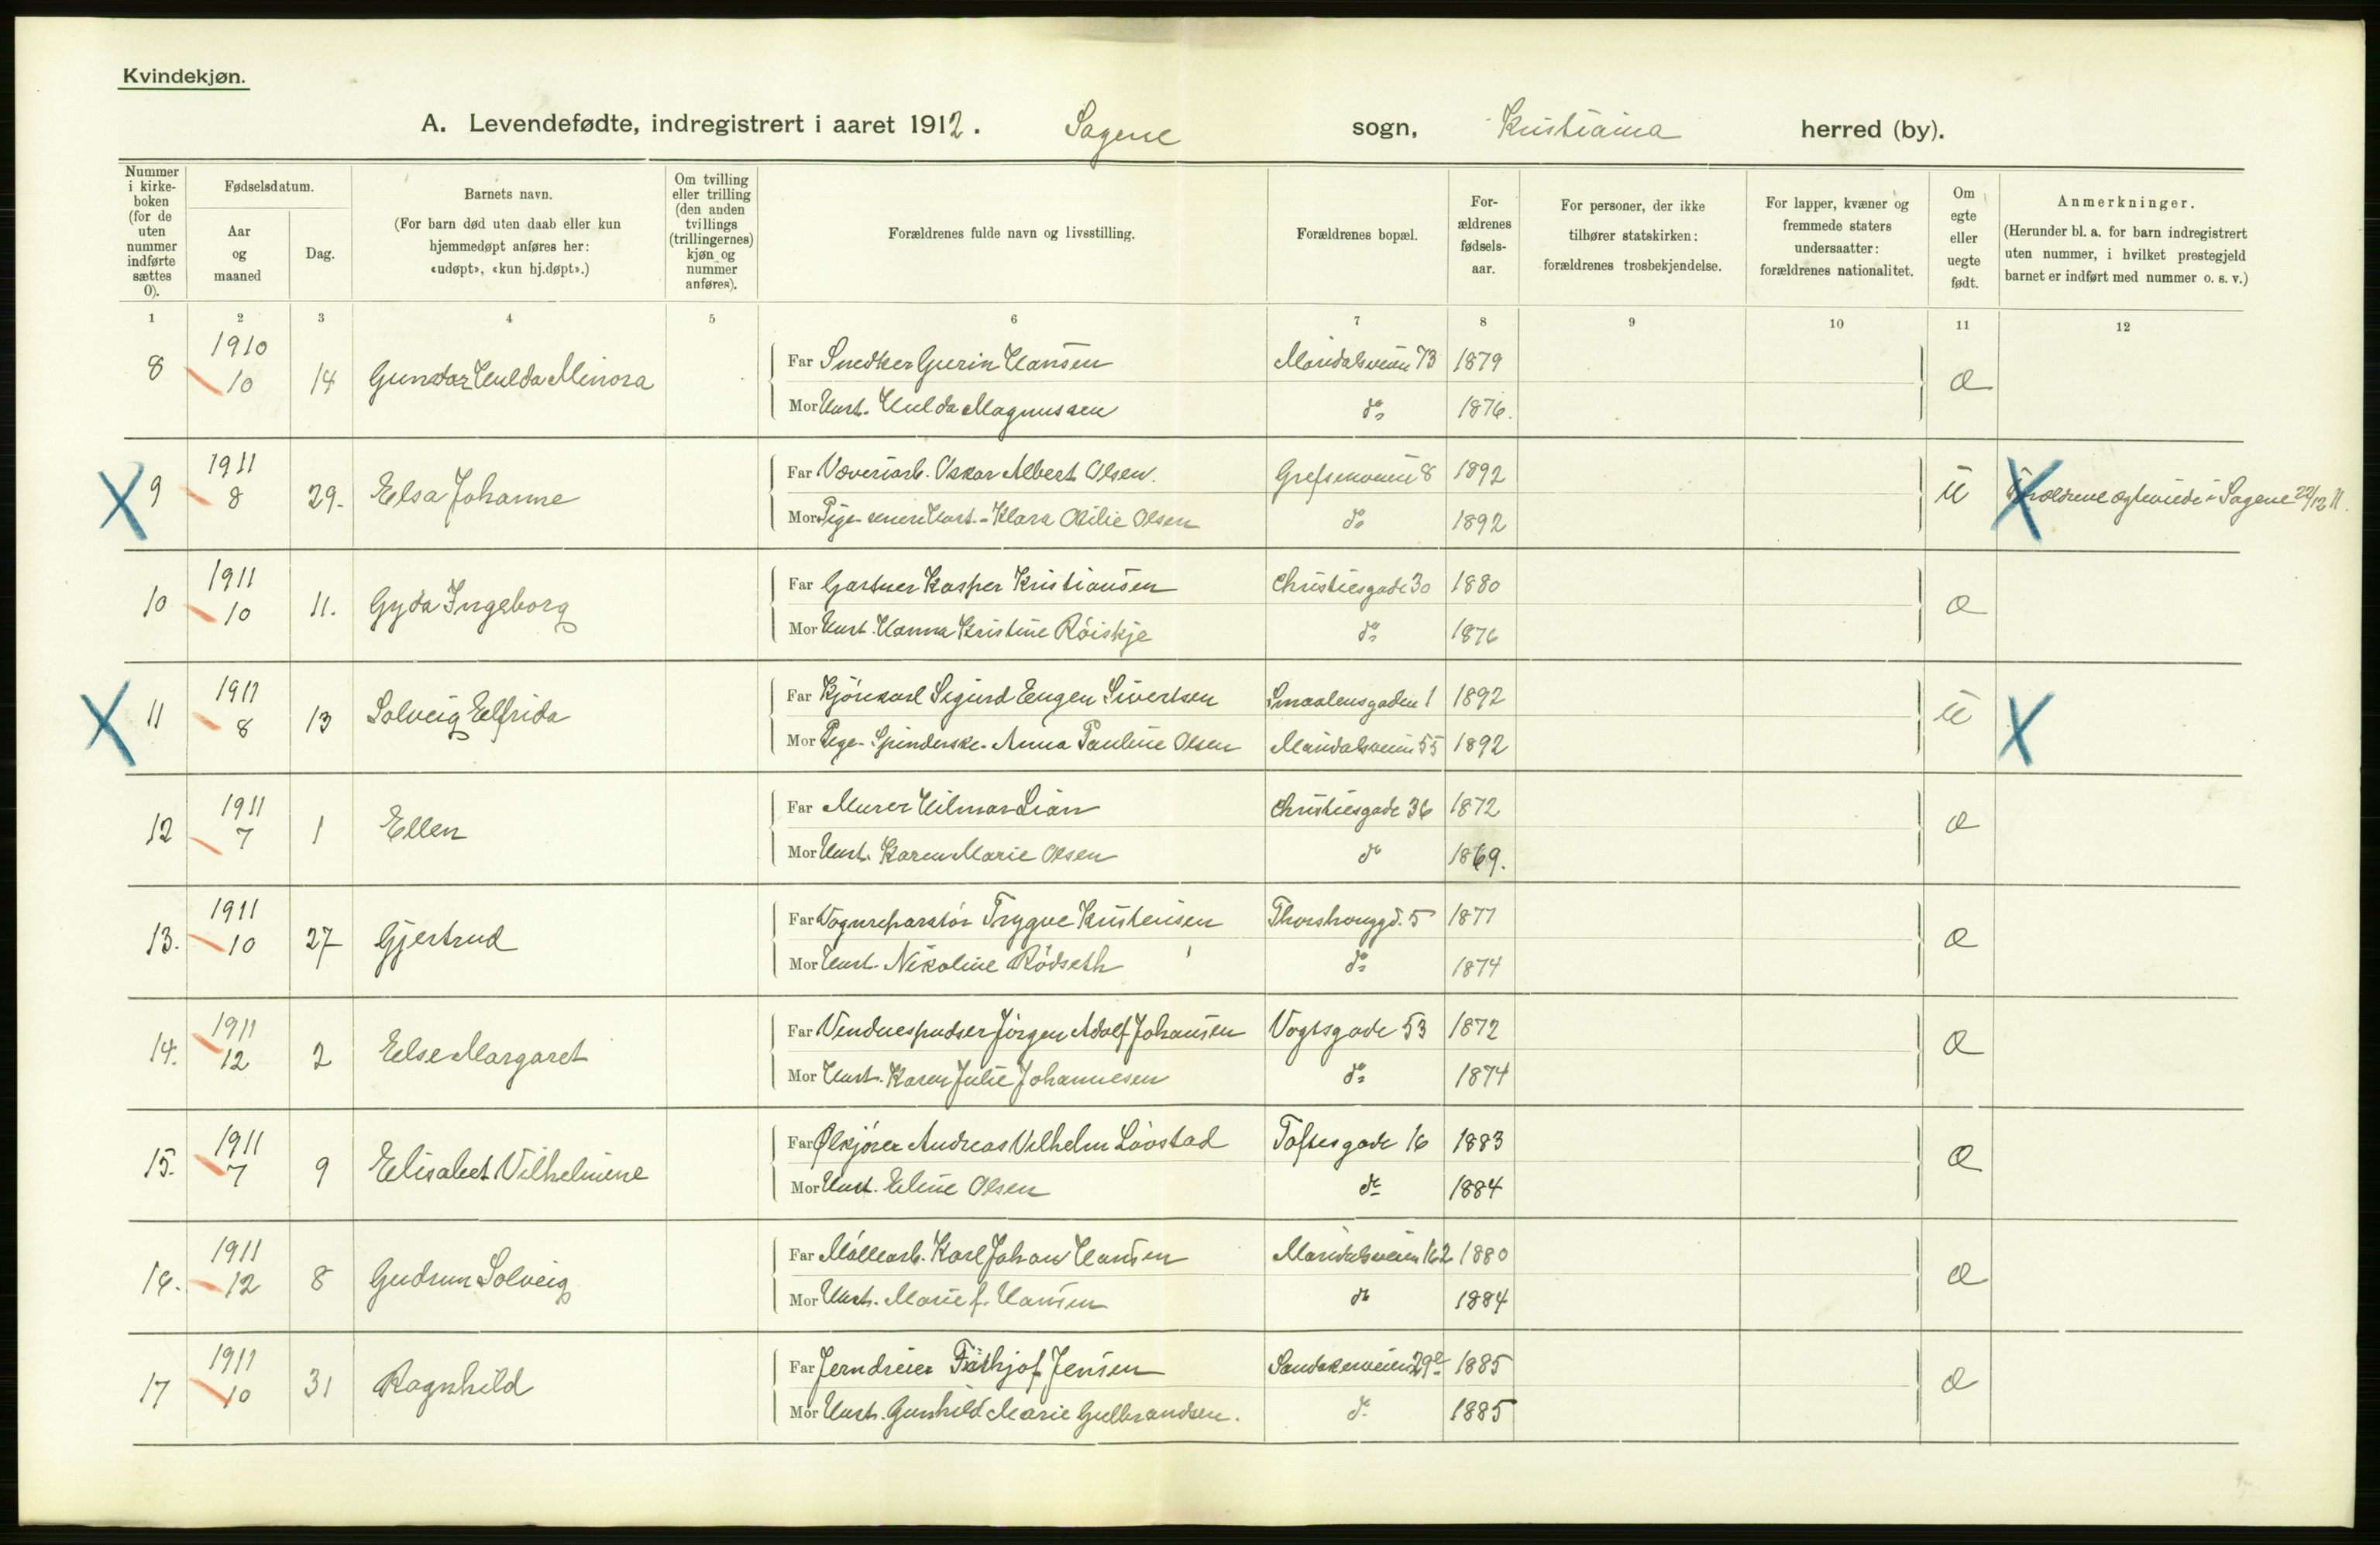 Kvindekjøn.
A. Levendefødte, indregistrert i aaret 1912. Sagene sogn, Kristiania herred (by).
Nummer i kirke-boken (for de uten nummer indførte sættes 0).
Fødselsdatum.
Aar og maaned
Dag.
Barnets navn.
(For barn død uten daab eller kun hjemmedøpt anføres her: «udøpt», «kun hj.døpt».)
Om tvilling eller trilling (den anden tvillings (trillingernes) kjøn og nummer anføres).
Forældrenes fulde navn og livsstilling.
Forældrenes bopæl.
For-ældrenes fødsels-aar.
For personer, der ikke tilhører statskirken: forældrenes trosbekjendelse.
For lapper, kvæner og fremmede staters undersaatter: forældrenes nationalitet.
Om egte eller uegte født.
Anmerkninger.
(Herunder bl. a. for barn indregistrert uten nummer, i hvilket prestegjeld barnet er indført med nummer o. s. v.)
1 2 3 4 5 6 7 8 9 10 11 12
8 1910 10 14 Hulda Minora
Far Snedker Hansen Maridalsveien 73 1879
Mor Hust. Hulda Magnussen do 1876. æ
9 1911 8 29. Elsa Johanne
Far Væveriarb. Oskar Albert Olsen. Grefsenveien 8 1892
Mor Pige senere Hust. - Klara Otilie Olsen do 1892 u
Forældrene ægteviede i Sagene 22/12 11.
10 1911 10 11. Gyda Ingeborg
Far Gartner Kasper Kristiansen Christiesgade 30 1880
Mor Hust. Hanna Kristine Röiskje do 1876 æ
11 1911 8 13 Solveig Elfrida
Far Kjörekarl Sigurd Eugen Sivertsen Smaalensgaden 1 1892
Mor Pige - Spinderske - Anna Pauline Olsen Maridalsveien 55 1892 u
12 1911 7 1 Ellen
Far Murer Hilmar Lian Christiesgade 36 1872
Mor Hust. Karen Marie Olsen do 1869. æ
13. 1911 10 27 Gjertrud
Far Vognreparatör Trygve Kristensen Thorshauggd. 5 1877
Mor Hust. Nikoline Rödseth do 1874 æ
14. 1911 12 2 Else Margaret
Far Vinduespudser Jörgen Adolf Johansen Vogtsgade 53 1872
Mor Hust. Karen Julie Johannesen do 1874 æ
15. 1911 7 9 Elisabet Vilhelmine
Far Ølkjörer Andreas Vilhelm Lövstad Toftesgade 16 1883
Mor Hust. Eline Olsen do 1884 æ
16. 1911 12 8 Gudrun Solveig
Far Möllearb. Karl Johan Hansen Maridalsveien 162 1880
Mor Hust. Marie f. Hansen do 1884 æ
17 1911 10 31 Ragnhild
Far Jerndreier Frithjof Jensen Sandakerveien 29e 1885
Mor Hust. Gunhild Marie Gulbrandsen. do 1885 æ